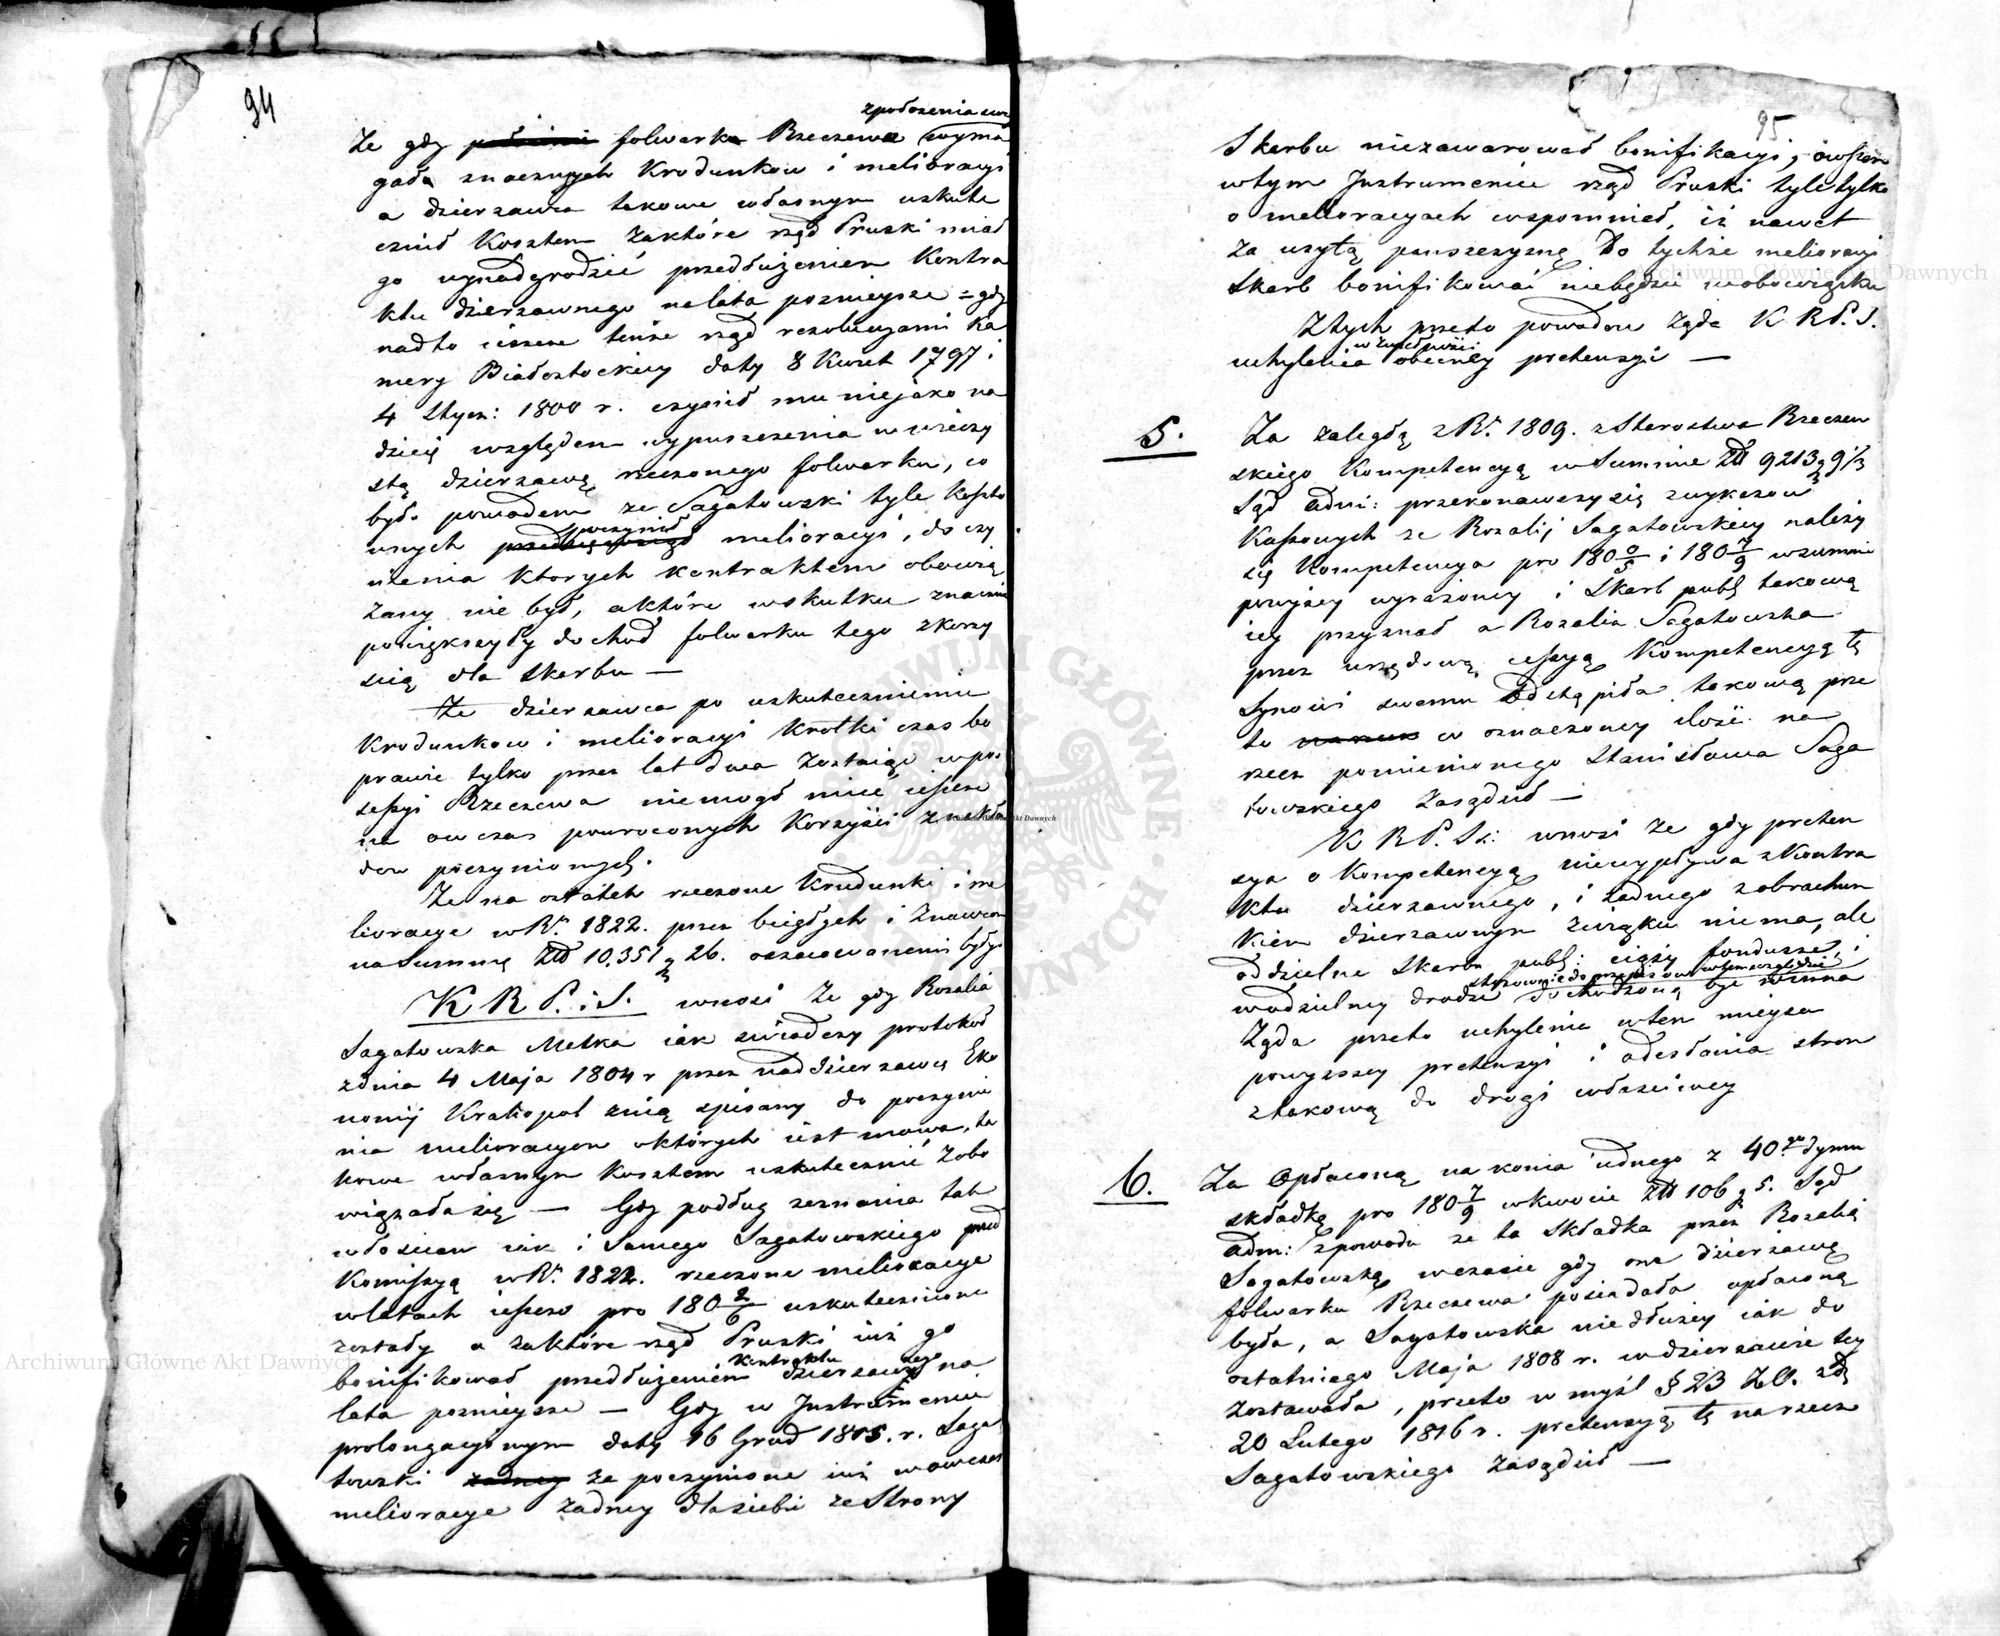 94
zpołożenia swe
Że gdy folwark Rzeczewa wyma
gała znacznych Krodunkow i melioracyi
a dzierzawca takowe własnym uskute
cznił Kosztem zaktóre rząd Pruski miał
go wynadgrodzić przedłużeniem Kontra
ktu dzierzawnego na lata poznieysze = gdy
nadto ieszcze tenże rząd rezolucyami Ka
mery Białostockiey daty 8 Kwiet 1797 i
4 Stycz: 1800 r. czynił mu niejako na
dzieię względem wypuszczenia w wieczy
stą dzierzawę rzeczonego folwarku, co
było powodem ze Sagatowski tyle koszto
wnych poczynił melioracyi, do czy
nienia ktorych kontraktem obowią
zany nie był, a które w skutku znacznie
powiększyły dochod folwarku tego z korzy
ścią dla Skarbu —
Że dzierzawca po uskutecznieniu
Krodunkow i melioracyi krotki czas bo
prawie tylko przez lat dwa zostaiąc w pos
sessyi Rzeczewa niemogł mieć ieszcze
na ow czas powroconych Korzyści z nakła
dow poczynionych.
Że na ostatek rzeczone Krudunki i me
lioracye w Rr. 1822. przez biegłych i znawcow
na Summę Złł 10,351 g 26. oszacowanemi były
K R P. i S. wnosi że gdy Rozalia
Sagatowska Matka iak świadczy protokoł
z dnia 4 Maja 1804 r przez naddzierzawcę Eko
nomij Krakopol z nią spisany do poczynie
nia melioracyow o których iest mowa, ta
kowe własnym Kosztem uskutecznić zobo
wiązała się — Gdy podług zeznania tak
włoscian iak i Samego Sagatowskiego przed
Komissyą w Rr. 1822. rzeczone melioracye
w latach ieszcze pro 180 2/6 uskutecznione
zostały a zaktóre rząd Pruski iuż go
Kontraktu nego
bonifikował przedłużeniem dzierzaw na
lata poznieysze — Gdy w Instrumencie
prolongacyinym daty 16 Grud 1805. r. Saga
towski ze poczynione iuż wowczas
melioracye żadney dla siebie ze Strony
95
Skarbu niezawarował bonifikacyi, owszem
w tym Instrumencie rząd Pruski tyle tylko
o melioracyach wspomniał, iż nawet
za użytą panszczyznę do tychże melioracyi
Skarb bonifikować niebędzie w obowiązku
Ztych przeto powodow żąda K R P. S.
w zupełności
uchylenia obecney pretensyi —
5. Za zaległą z Rr. 1809. z Starostwa Rzeczew
skiego Kompetencyą w Summie Złł 9213 g 9 1/3
Sąd adm: przekonawszy się z wykazow
Kassowych ze Rozalij Sagatowskiey należy
się Kompetencya pro 180 i 180 7/9 w summie
powyżey wyrażoney i Skarb publ takową
iey przyznał a Rozalia Sagatowska
przez urzędową cessyą Kompetencyą tę
Synowi swemu Odstąpiła takową prze
to w oznaczoney ilości na
rzecz pomienionego Stanisława Saga
towskiego zasądził —
K R P. Sk: wnosi że gdy preten
sya o Kompetencyą niewypływa z Kontra
ktu dzierzawnego, i żadnego z obrachun
kiem dzierzawnym związku niema, ale
oddzielne Skarbu publ: ciąży fundusze, i
stosownie do przepisow w tem względzie
w oddzielney drodze dochodzoną być winna
Żąda przeto uchylenia w tem mieyscu
powyższey pretensyi i odesłania stron
z takową do drogi właściwey
6. Za Opłaconą na konia iednego z 40go dymu
składkę pro 180 7/9 w kwocie Złł 106 g 5. Sąd
adm: z powodu ze ta Składka przez Rozalią
Sagatowską w czasie gdy ona dzierzawę
folwarku Rzeczewa posiadała opłaconą
była, a Sagatowska niedłużey iak do
ostatniego Maja 1808 r. w dzierzawie tey
zostawała, przeto w myśl § 23 ZO. z dy
20 Lutego 1816 r. pretensyą tę na rzecz
Sagatowskiego zasądził —
Archiwum Główne Akt Dawnych
Archiwum Główne Akt Dawnych